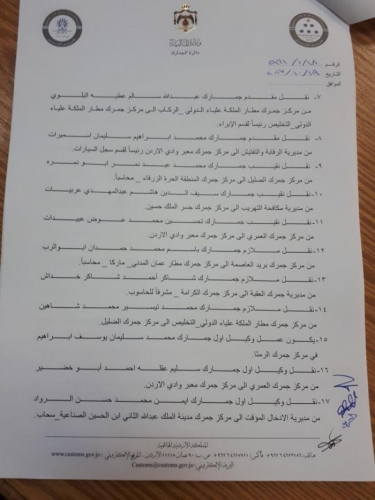 وزارة المالية
دائرة الجمارك
الرقم
التاريخ
الموافق
٧- نقل مقدم جمارك عبدالله سالم عطيه البلوي
من مركز جمرك مطار الملكة علياء الدولي _ الركاب الى مركز جمرك مطار الملكة علياء
الدولي_التخليص رئيساً لقسم الإبراء.
٨- نقل مقدم جمارك محمد ابراهيم سليمان
من مديرية الرقابة والتفتيش الى مركز جمرك معبر وادي الاردن رئيساً لقسم سجل السيارات.
٩- نقل نقيب جمارك محمد عبد نصر ابو نصره
من مركز جمرك الضليل الى مركز جمرك المنطقة الحرة الزرقاء _ محاسباً.
١٠- نقل نقيب جمارك سيف الدين هاشم عبدالمهدي عربيات
من مديرية مكافحة التهريب الى مركز جمرك جسر الملك حسين.
١١- نقل نقيب جمارك تحسين محمد عوض عبيدات
من مركز جمرك العمري الى مركز جمرك معبر وادي الاردن.
١٢- نقل ملازم جمارك باسم محمد حمدان ابوالرب
من مركز جمرك بريد العاصمة الى مركز جمرك مطار عمان المدني/ ماركا _ محاسباً.
١٣- نقل ملازم جمارك شاكر أحمد شاكر خداش
من مديرية جمرك العقبة الى مركز جمرك الكرامة _ مشرفاً للحاسوب.
١٤- نقل ملازم جمارك محمد تيسير محمد شاهين
من مركز جمرك مطار الملكة علياء الدولي_التخليص الى مركز جمرك الضليل.
١٥- يكون عمل وكيل اول جمارك محمد سليمان يوسف ابراهيم
في مركز جمرك الرمثا.
١٦- نقل وكيل اول جمارك سليم عقله احمد أبو خضير
من مركز جمرك العمري الى مركز جمرك معبر وادي الاردن.
١٧- نقل وكيل اول جمارك ايمن محمد حسن الرواد
من مديرية الادخال المؤقت الى مركز جمرك مدينة الملك عبدالله الثاني ابن الحسين الصناعية_سحاب.
المملكة الأردنية الهاشمية